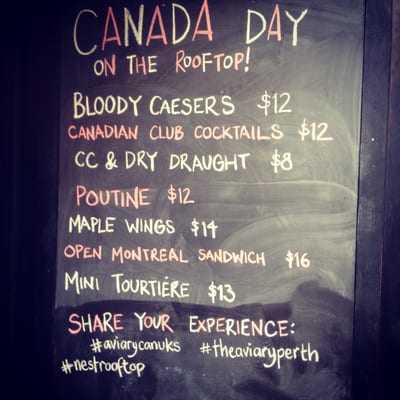 CANADA DAY
ON THE ROOFTOP!
BLOODY CAESERS $12
CANADIAN CLUB COCKTAILS $12
CC & DRY DRAUGHT $8
POUTINE $12
MAPLE WINGS $14
OPEN MONTREAL SANDWICH $16
MINI TOURTIÈRE $13
SHARE YOUR EXPERIENCE:
#aviarycanuks #theaviaryperth
#nestrooftop